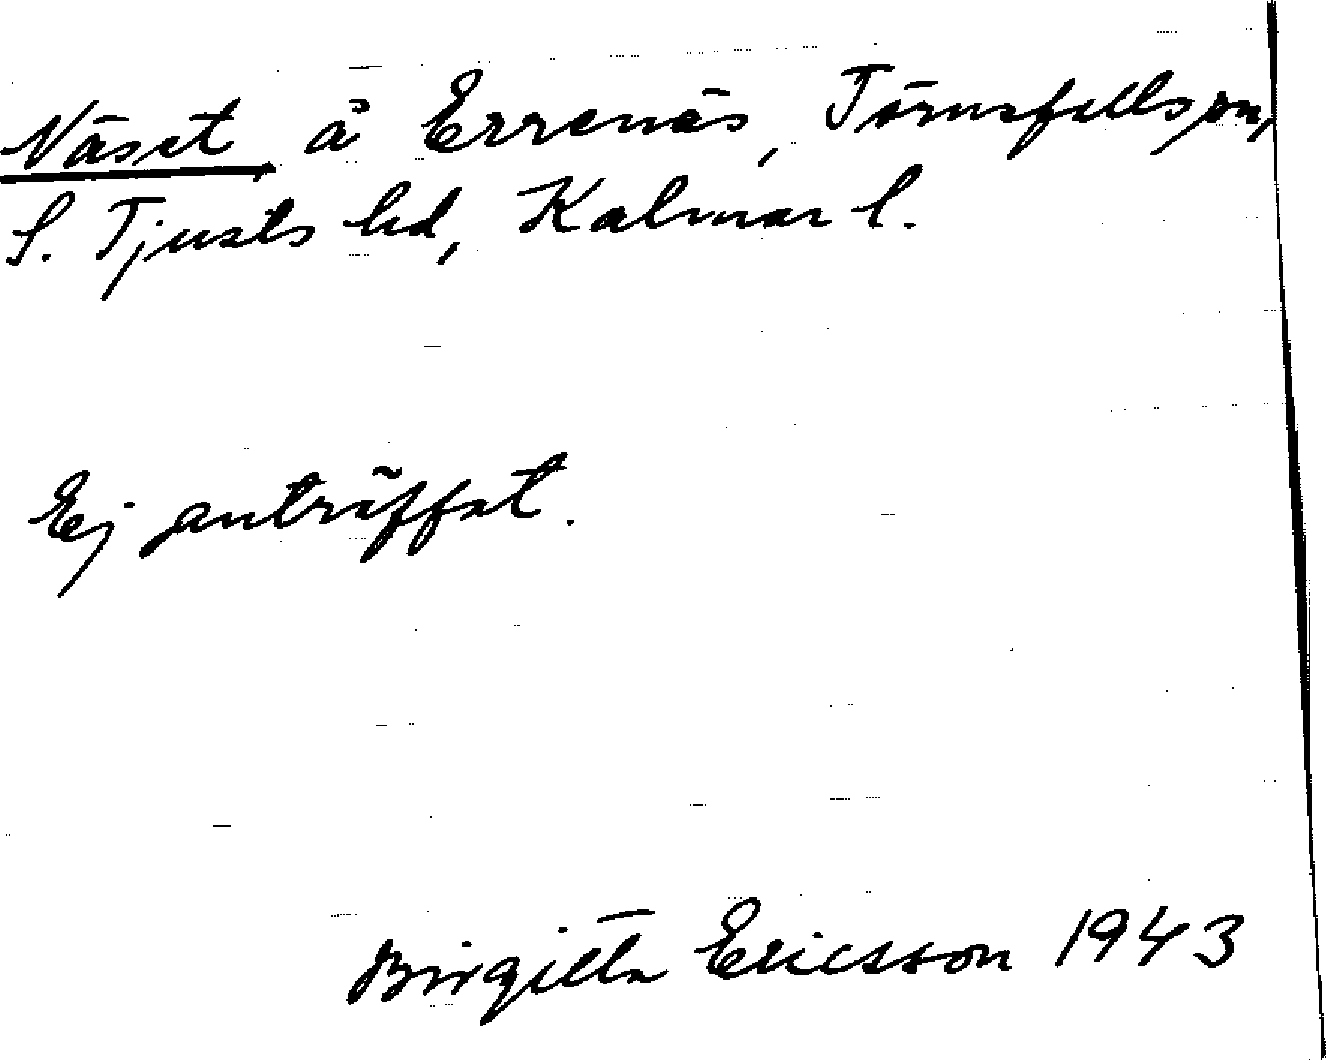 Näset, å Errenäs, Törnsfalls sn,
S. Tjusts hd, Kalmar l.
Ej anträffat.
Birgitta Ericsson 1943